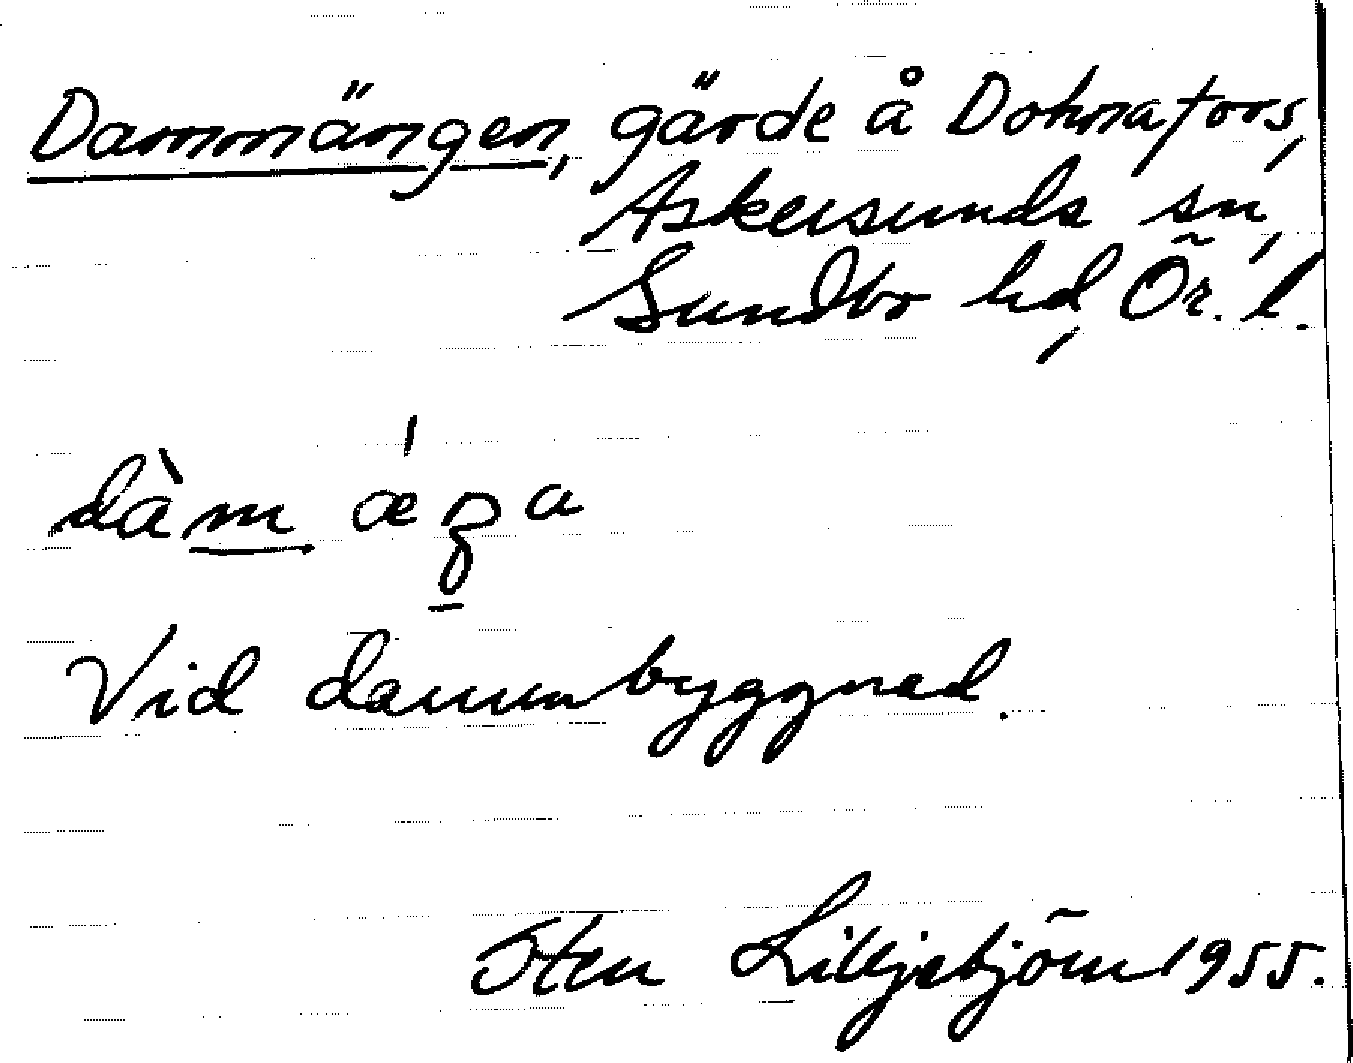 Dammängen, gärde å Dohnafors,
Askersunds sn,
Sundbo hd, Ör. l.
dàm ǽŋa
Vid dammbyggnad.
Sten Lilljebjörn 1955.